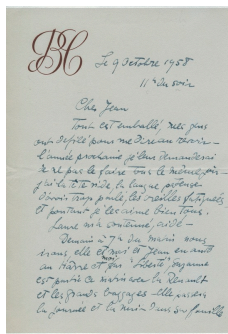 JBC
Le 9 Octobre 1958
11h du soir
Cher Jean
Tout est emballé, mes gens
ont défilé pour me dire au revoir
l'année prochaine je leur demanderai
de ne pas le faire tous le même jour
j'ai la tête vide, la langue
d'avoir trop parlé, les oreilles fatiguées
et pourtant je les aime bien tous.
Laure m'a
Demain à 7h du matin nous
irons, elle et moi et Jean
au Havre "Liberté" Suzanne
est partie ce matin avec la Renault
et les grands bagages. Elle passera
la journée et la nuit dans sa famille